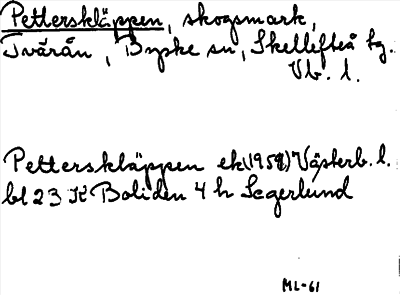 Petterskläppen, skogsmark,
Tvärån, Byske sn, Skellefteå tg.
Vb. l.
Petterskläppen ek(1959) Västerb. l.
bl 23 K Boliden 4 h Segerlund
ML-61